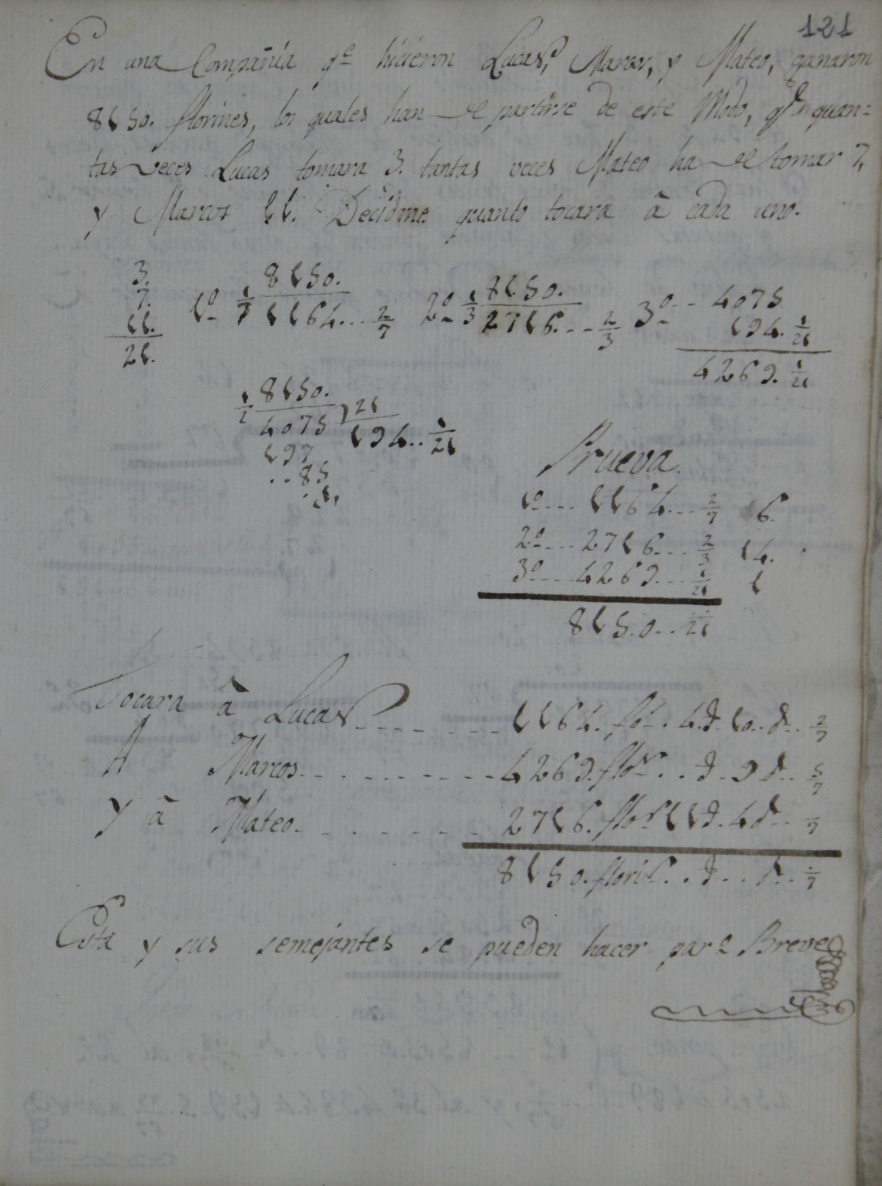 121
En una Compañia qe hicieron Lucas, Marcos, y Mateo, ganaron
8150. florines, los quales han de partirse de este Modo, qe quan=
tas veces Lucas tomara 3. tantas veces Mateo ha de tomar 7,
y Marcos 11. Decidme quanto tocara à cada uno.
3. 1º 1/7 8150. 2º 1/3 8150. 3º -- 4075
7. 1164... 2/7 2716... 2/3 194. 1/21
11. 4269. 1/21
21.
1/2 8150.
4075 21
197 194.. 1/21
..85
..1.
Prueva.
1º... 1164... 2/7 6.
2º... 2716... 2/3 14.
3º... 4269... 1/21 1
8150.. 21
Tocara à Lucas - - - - - - - 1164. flos. 4.d. 10. d. 2/7
A Marcos - - - - - - - 4269. flos. . d. 9 d. 5/7
y à Mateo - - - - - - - 2716. flos 11 d. 4 d.. /7
8150. floris. . d. . d. . /7
Esta y sus semejantes se pueden hacer par2 Breve